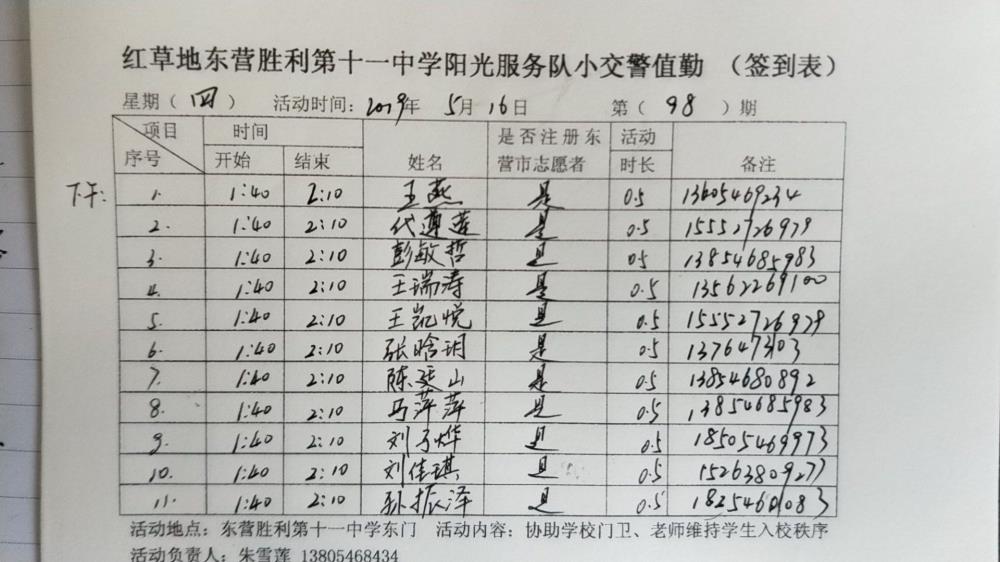 红草地东营胜利第十一中学阳光服务队小交警值勤 （签到表）
星期（四） 活动时间：2019年 5月16日 第（98）期
项目 时间 是否注册东 活动
序号 开始 结束 姓名 营市志愿者 时长 备注
下午: 1. 1:40 2:10 王燕 是 0.5 13605469234
2. 1:40 2:10 代遵莲 是 0.5 15552726979
3. 1:40 2:10 彭敏哲 是 0.5 13854685983
4. 1:40 2:10 王瑞涛 是 0.5 13562269100
5. 1:40 2:10 王凯悦 是 0.5 15552726979
6. 1:40 2:10 张晗玥 是 0.5
7. 1:40 2:10 陈延山 是 0.5 13854680892
8. 1:40 2:10 马萍萍 是 0.5 13854685983
9. 1:40 2:10 刘子烨 是 0.5 18505469973
10. 1:40 2:10 刘佳琪 是 0.5 15263809277
11. 1:40 2:10 孙振泽 是 0.5
活动地点：东营胜利第十一中学东门 活动内容：协助学校门卫、老师维持学生入校秩序
活动负责人：朱雪莲 13805468434